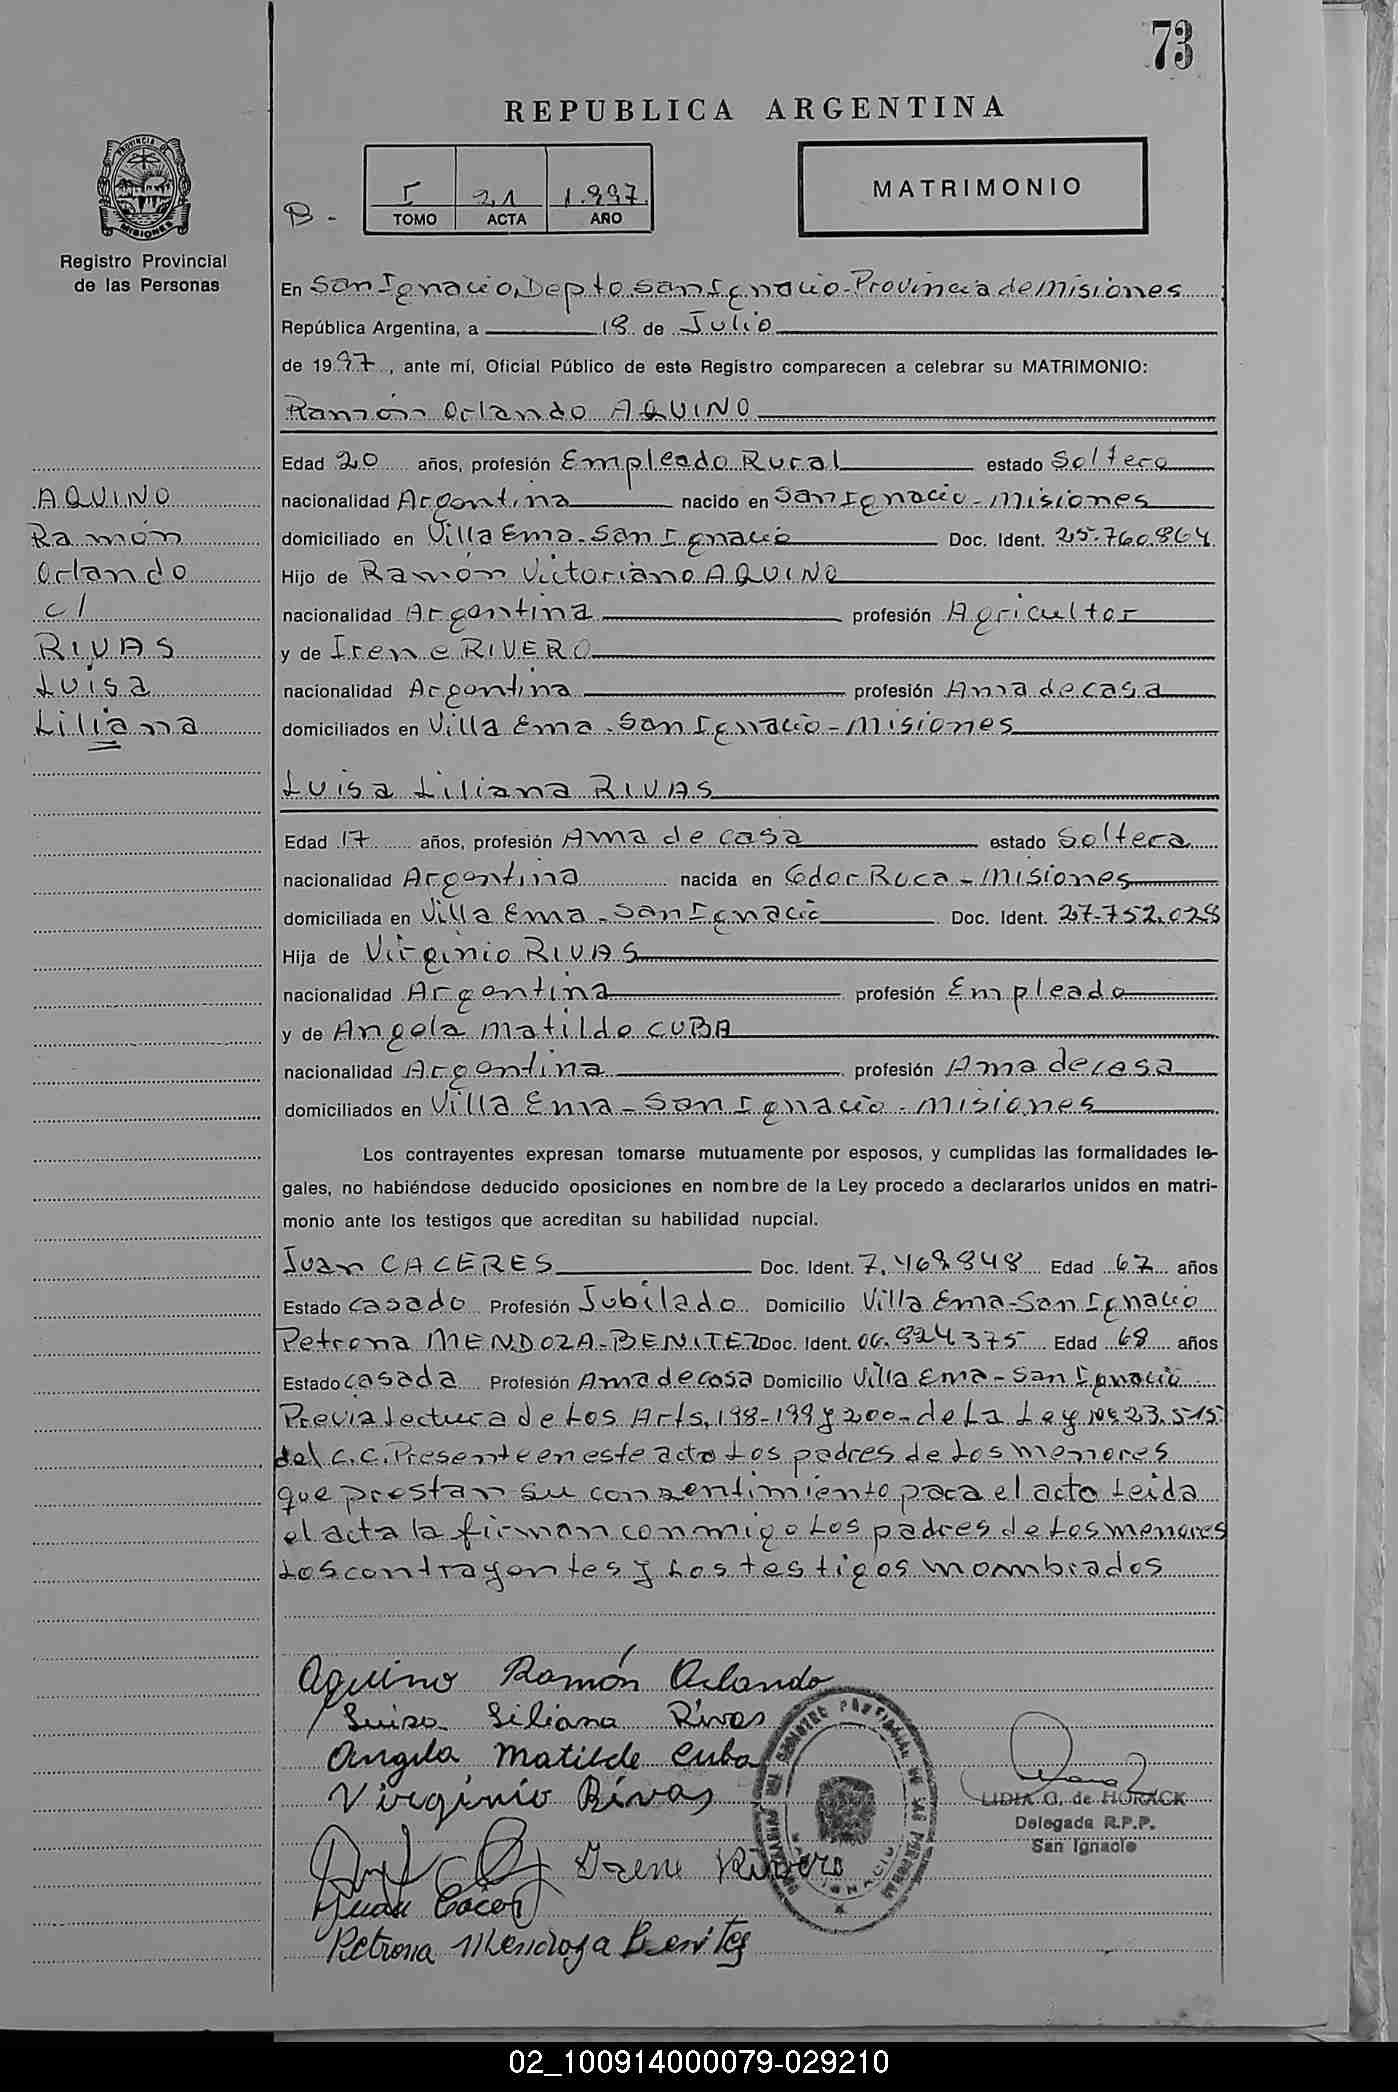 73
REPUBLICA ARGENTINA
PROVINCIA DE MISIONES
Registro Provincial
de las Personas
B - I 21 1.997
TOMO ACTA AÑO
MATRIMONIO
En San Ignacio, Depto. San Ignacio - Provincia de Misiones
República Argentina, a 18 de Julio
de 1997, ante mí, Oficial Público de este Registro comparecen a celebrar su MATRIMONIO:
Ramón Orlando AQUINO
Edad 20 años, profesión Empleado Rural estado Soltero
nacionalidad Argentina nacido en San Ignacio - Misiones
domiciliado en Villa Ema - San Ignacio Doc. Ident. 25.760.864
Hijo de Ramón Victoriano AQUINO
nacionalidad Argentina profesión Agricultor
y de Irene RIVERO
nacionalidad Argentina profesión Ama de casa
domiciliados en Villa Ema - San Ignacio - Misiones
AQUINO
Ramón
Orlando
c/
RIVAS
Luisa
Liliana
Luisa Liliana RIVAS
Edad 17 años, profesión Ama de casa estado Soltera
nacionalidad Argentina nacida en Gdor Roca - Misiones
domiciliada en Villa Ema - San Ignacio Doc. Ident. 27.752.028
Hija de Virginio RIVAS
nacionalidad Argentina profesión Empleado
y de Angela Matilde CUBA
nacionalidad Argentina profesión Ama de casa
domiciliados en Villa Ema - San Ignacio - Misiones
Los contrayentes expresan tomarse mutuamente por esposos, y cumplidas las formalidades le-
gales, no habiéndose deducido oposiciones en nombre de la Ley procedo a declararlos unidos en matri-
monio ante los testigos que acreditan su habilidad nupcial.
Juan CACERES Doc. Ident. 7.468.848 Edad 67 años
Estado Casado Profesión Jubilado Domicilio Villa Ema - San Ignacio
Petrona MENDOZA - BENITEZ Doc. Ident. 06.824375 Edad 68 años
Estado Casada Profesión Ama de casa Domicilio Villa Ema - San Ignacio
Previa lectura de los Arts. 198-199 y 200 - de la Ley Nº 23.515
del C.C. Presente en este acto los padres de los menores
que prestan su consentimiento para el acto leida
el acta la firman conmigo los padres de los menores
los contrayentes y los testigos nombrados
Aquino Ramón Orlando
Luisa Liliana Rivas
Angela Matilde Cuba
Virginio Rivas
Irene Rivero
Juan Cacer
Petrona Mendoza Benitez
LIDIA G. de HORACK
Delegada R.P.P.
San Ignacio
02_100914000079-029210